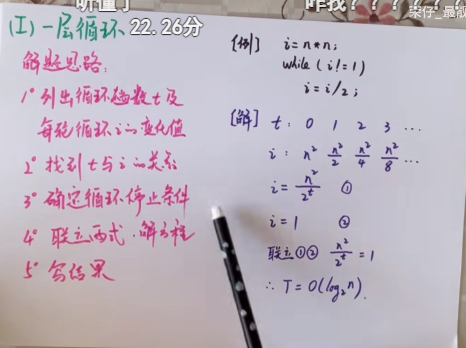 听懂了
咋找？？？？？
荣仔_最靓
(I) 一层循环 22.26分
解题思路：
1° 列出循环趟数 t 及
每轮循环 i 的变化值
2° 找到 t 与 i 的关系
3° 确定循环停止条件
4° 联立两式，解方程
5° 写结果
[例] i=n*n;
while (i!=1)
i=i/2;
[解] t: 0 1 2 3 ...
i: n² n²/2 n²/4 n²/8 ...
i = n²/2^t ①
i = 1 ②
联立①② n²/2^t = 1
∴ T = O(log₂n).